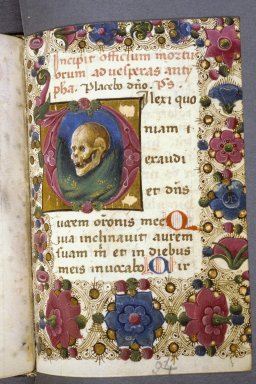 Incipit officium mortu
orum ad uesperas anty
pha. Placebo dño. Ps.
Dilexi quo
niam i
eraudi
et dñs
uocem orõnis mee Q
uia inclinauit aurem
suam m̃ et in diebus
meis inuocabo Cir